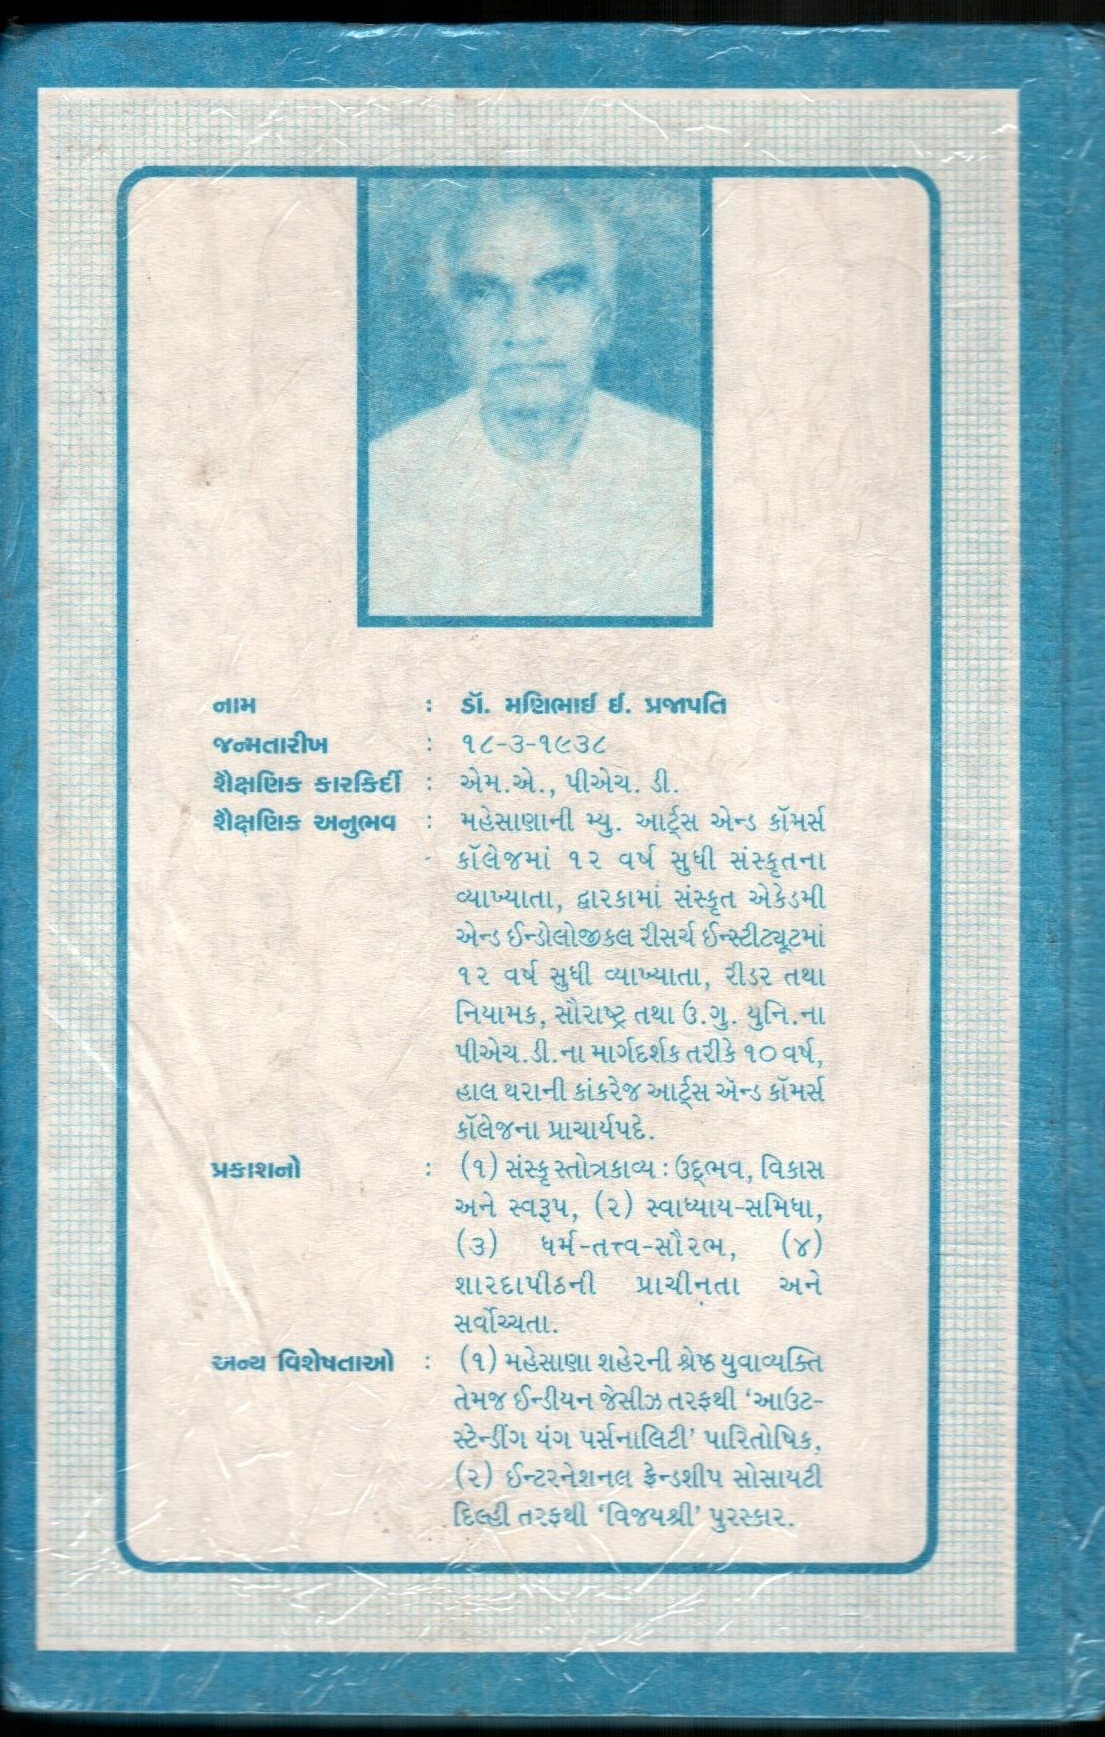 નામ : ડૉ. મણિભાઈ ઈ. પ્રજાપતિ
જન્મતારીખ : ૧૮-૩-૧૯૩૮
શૈક્ષણિક કારકિર્દી : એમ.એ., પીએચ. ડી.
શૈક્ષણિક અનુભવ : મહેસાણાની મ્યુ. આર્ટ્સ એન્ડ કૉમર્સ
કૉલેજમાં ૧૨ વર્ષ સુધી સંસ્કૃતના
વ્યાખ્યાતા, દ્વારકામાં સંસ્કૃત એકેડમી
એન્ડ ઈન્ડોલોજીકલ રીસર્ચ ઈન્સ્ટીટ્યૂટમાં
૧૨ વર્ષ સુધી વ્યાખ્યાતા, રીડર તથા
નિયામક, સૌરાષ્ટ્ર તથા ઉ.ગુ. યુનિ.ના
પીએચ.ડી.ના માર્ગદર્શક તરીકે ૧૦ વર્ષ,
હાલ થરાની કાંકરેજ આર્ટ્સ ઍન્ડ કૉમર્સ
કૉલેજના પ્રાચાર્યપદે.
પ્રકાશનો : (૧) સંસ્કૃ સ્તોત્રકાવ્ય : ઉદ્ભવ, વિકાસ
અને સ્વરૂપ, (૨) સ્વાધ્યાય-સમિધા,
(૩) ધર્મ-તત્ત્વ-સૌરભ, (૪)
શારદાપીઠની પ્રાચીનતા અને
સર્વોચ્ચતા.
અન્ય વિશેષતાઓ : (૧) મહેસાણા શહેરની શ્રેષ્ઠ યુવાવ્યક્તિ
તેમજ ઈન્ડીયન જેસીઝ તરફથી ‘આઉટ-
સ્ટેન્ડીંગ યંગ પર્સનાલિટી’ પારિતોષિક,
(૨) ઈન્ટરનેશનલ ફ્રેન્ડશીપ સોસાયટી
દિલ્હી તરફથી ‘વિજયશ્રી’ પુરસ્કાર.